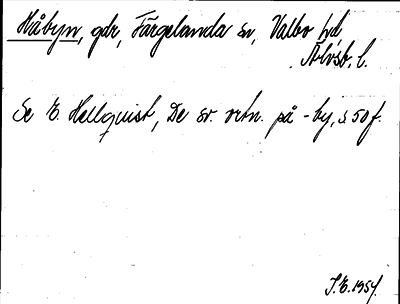 Håbyn, gdr, Färgelanda sn, Valbo hd,
Älvsb. l.
Se E. Hellquist, De sv. ortn. på -by, s. 50 f.
I.E. 1954.